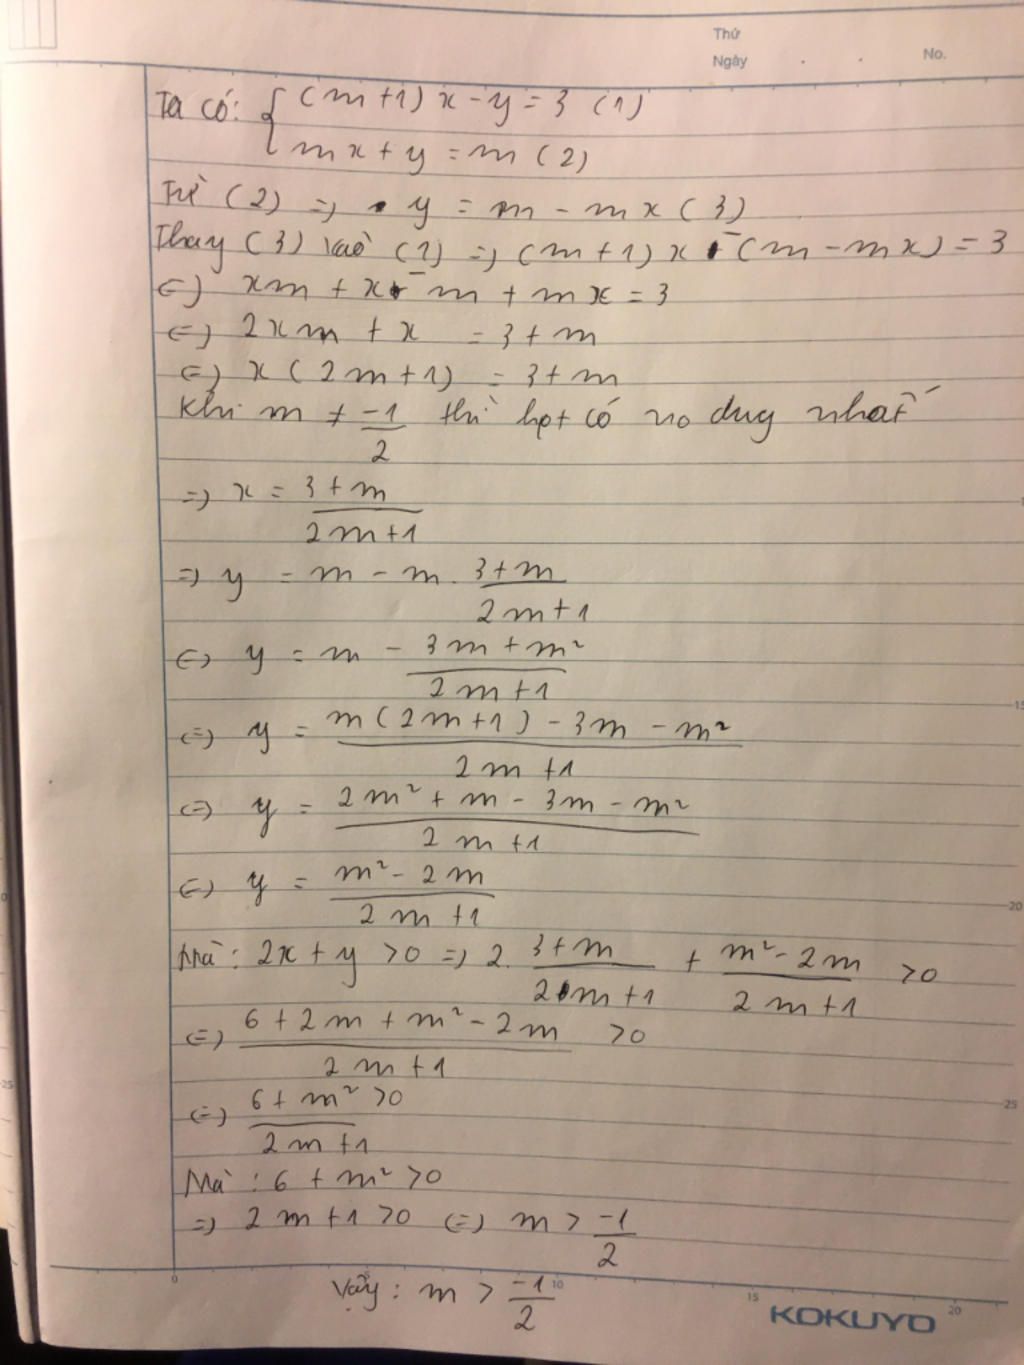 Thứ
Ngày . . No.
Ta có: { (m+1)x-y=3 (1)
mx+y=m(2)
Từ (2) => y = m - mx (3)
Thay (3) vào (1) => (m+1)x - (m-mx)=3
<=> xm + x - m + mx = 3
<=> 2xm + x = 3+m
<=> x(2m+1) = 3+m
Khi m ≠ -1/2 thì hpt có no duy nhất
=> x = (3+m)/(2m+1)
=> y = m - m. (3+m)/(2m+1)
<=> y = m - (3m+m²)/(2m+1)
<=> y = (m(2m+1)-3m-m²)/(2m+1)
<=> y = (2m²+m-3m-m²)/(2m+1)
<=> y = (m²-2m)/(2m+1)
Mà: 2x+y>0 => 2. (3+m)/(2m+1) + (m²-2m)/(2m+1) >0
<=> (6+2m+m²-2m)/(2m+1) >0
<=> (6+m²)/(2m+1) >0
Mà: 6+m²>0
=> 2m+1>0 <=> m > -1/2
Vậy: m > -1/2
0 5 10 15 20
15
20
25
0
25
KOKUYO